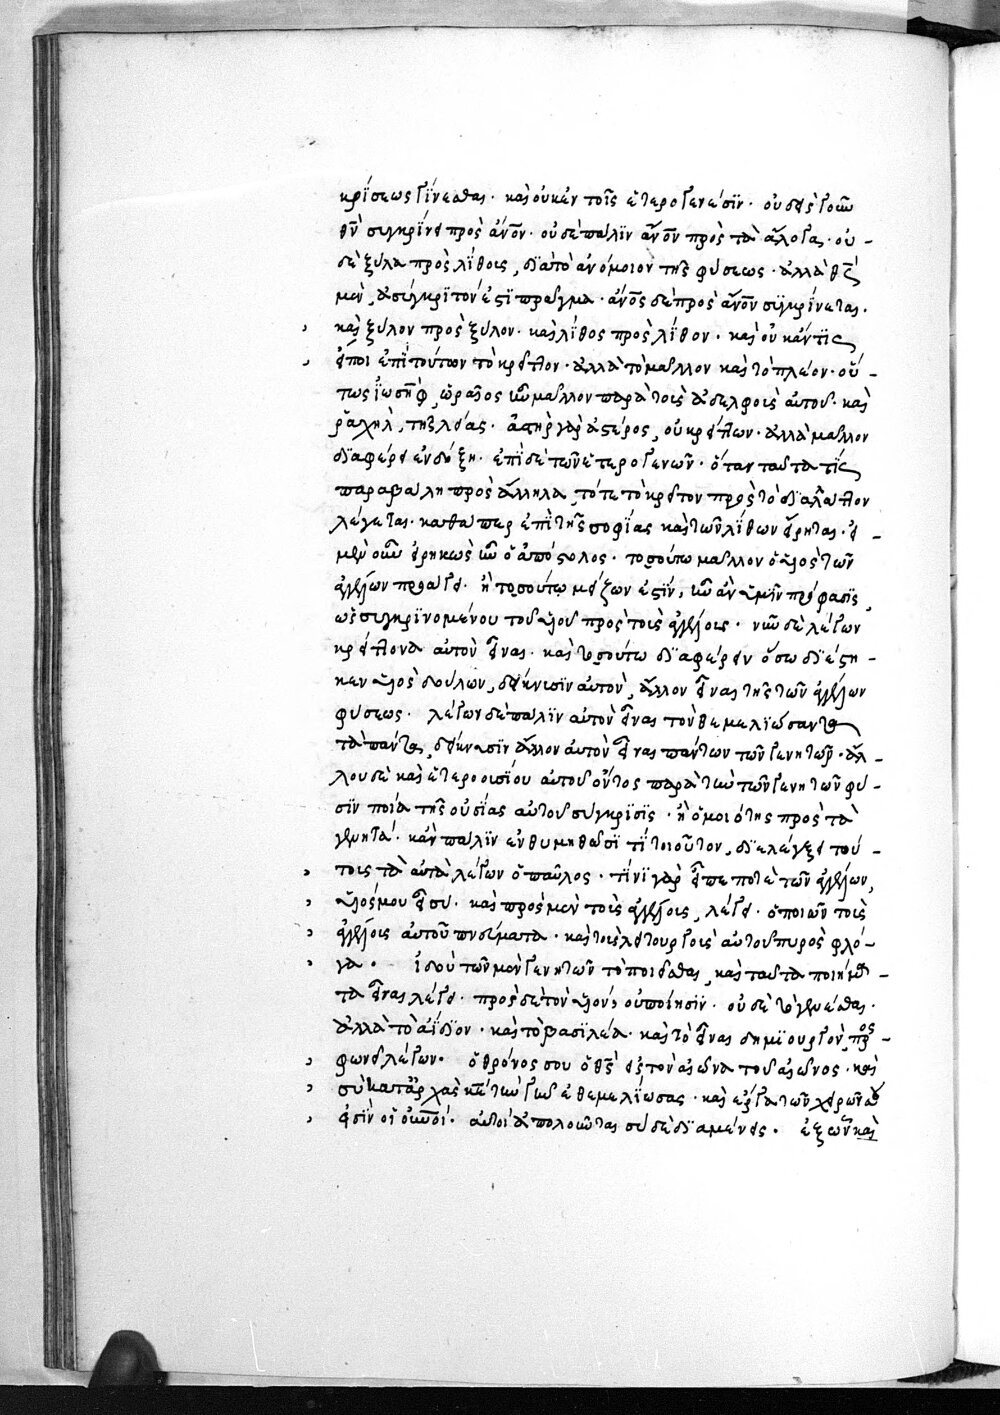 κρίσεως γίνεσθαι· καὶ οὐκ ἐν τοῖς ἑτερογενέσιν· οὐδεὶς γοῦν
θν̄ συγκρίνει πρὸς ἄνο̄ν· οὐδὲ πάλιν ἄνο̄ν πρὸς τὰ ἄλογα· οὐ-
δὲ ξύλα πρὸς λίθοις, διὰ τὸ ἀνόμοιον τῆς φύσεως· ἀλλὰ θς̄
μὲν, ἀσύγκριτόν ἐστι πρᾶγμα· ἄνο̄ς δὲ πρὸς ἄνο̄ν συγκρίνεται.
καὶ ξύλον πρὸς ξύλον· καὶ λίθος πρὸς λίθον· καὶ οὐκ ἄν τις
εἴποι ἐπὶ τούτων τὸ κρεῖττον· ἀλλὰ τὸ μᾶλλον καὶ τὸ πλέον· οὕ-
τως ἰωσὴφ, ὡραῖος ἦν μᾶλλον παρὰ τοὺς ἀδελφοὺς αὐτοῦ· καὶ
ῥαχὴλ, τῆς λείας· ἀστὴρ γὰρ ἀστέρος, οὐ κρείττων· ἀλλὰ μᾶλλον
διαφέρει ἐν δόξῃ· ἐπὶ δὲ τῶν ἑτερογενῶν· ὅταν ταῦτα τίς
παραβάλη πρὸς ἄλληλα, τότε τὸ κρεῖττον πρὸς τὸ διαλλάττον
λέγεται· καθάπερ ἐπὶ τῆς σοφίας καὶ τῶν λίθων εἴρηται· εἰ
μὲν οὖν εἰρηκὼς ἦν ὁ ἀπόστολος· τοσούτω μᾶλλον ὁ υἱὸς τῶν
ἀγγέλων προάγει· ἢ τοσούτω μείζων ἐστίν, ἦν ἂν ὑμῖν πρόφασις,
ὡς συγκρινομένου τοῦ υἱοῦ πρὸς τοὺς ἀγγέλους· νῦν δὲ λέγων
κρείττονα αὐτὸν εἶναι· καὶ τοσούτω διαφέρειν ὅσω διέστη-
κεν υἱὸς δούλων, δείκνυσιν αὐτὸν, ἄλλον εἶναι τῆς τῶν ἀγγέλων
φύσεως· λέγων δὲ πάλιν αὐτὸν εἶναι τὸν θεμελιώσαντα
τὰ πάντα, δείκνυσιν ἄλλον αὐτὸν εἶναι πάντων τῶν γενητῶν· ἄλ-
λου δὲ καὶ ἑτεροουσίου αὐτοῦ ὄντος παρὰ τὴν τῶν γενητῶν φύ-
σιν ποία τῆς οὐσίας αὐτοῦ σύγκρισις· ἢ ὁμοιότης πρὸς τὰ
γενητά· κἂν πάλιν ἐνθυμηθῶσί τι τοιοῦτον, διελέγξει τού-
τοις τὰ αὐτὰ λέγων ὁ παῦλος· τίνι γὰρ εἶπέ ποτε τῶν ἀγγέλων,
υἱός μου εἶ σύ· καὶ πρὸς μὲν τοὺς ἀγγέλους, λέγει· ὁ ποιῶν τοὺς
ἀγγέλους αὐτοῦ πνεύματα· καὶ τοὺς λειτουργοὺς αὐτοῦ πυρὸς φλό-
γα· ἰδοὺ τῶν μὲν γενητῶν τὸ ποιεῖσθαι, καὶ ταῦτα ποιήμα-
τα εἶναι λέγει· πρὸς δὲ τὸν υἱὸν, οὐ ποίησιν· οὐδὲ τὸ γενέσθαι·
ἀλλὰ τὸ ἀίδιον· καὶ τὸ βασιλέα· καὶ τὸ εἶναι δημιουργὸν, προσ-
φωνεῖ λέγων· ὁ θρόνος σου ὁ θς̄ εἰς τὸν αἰῶνα τοῦ αἰῶνος· καὶ
σὺ κατἀρχὰς κε̄ τὴν γῆν ἐθεμελίωσας· καὶ ἔργα τῶν χειρῶν σου
εἰσὶν οἱ οὐνοί· αὐτοὶ ἀπολοῦνται σὺ δὲ διαμένεις· ἐξ ὧν καὶ